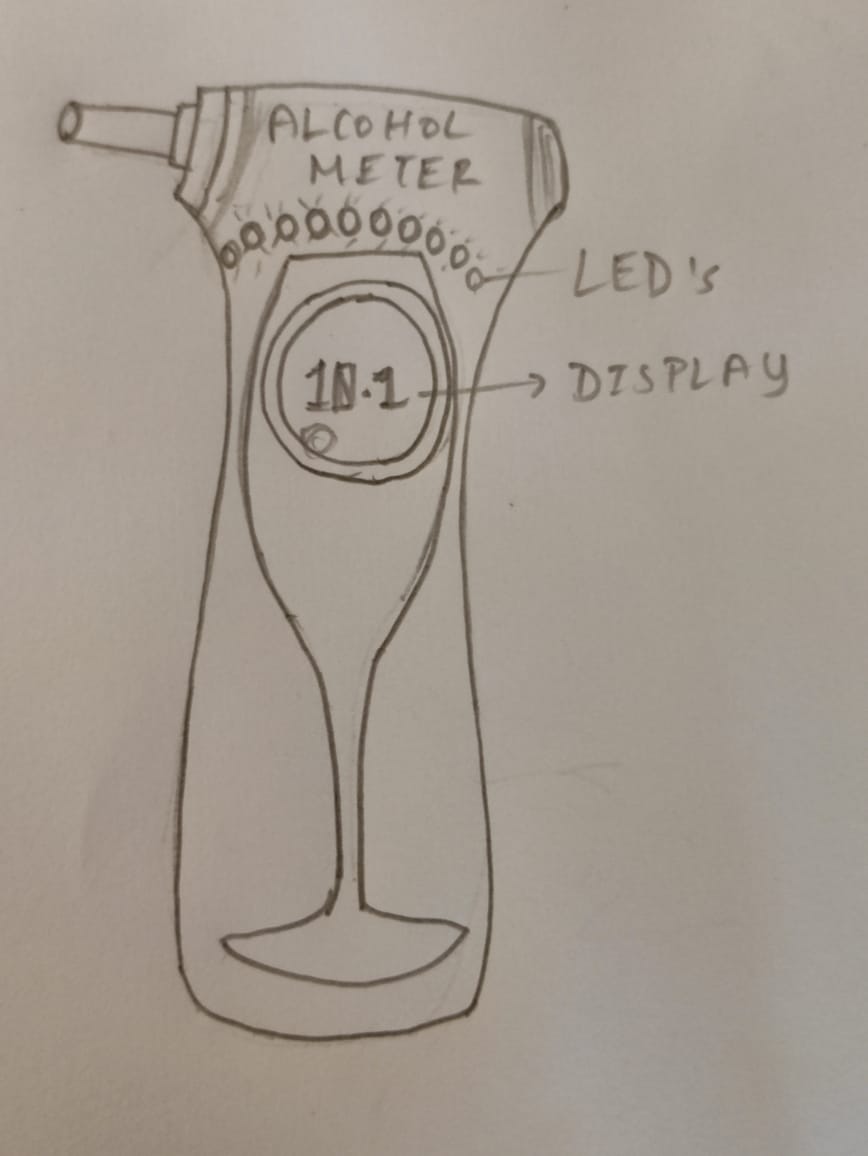 ALCOHOL
METER
LED's
10.1
DISPLAY